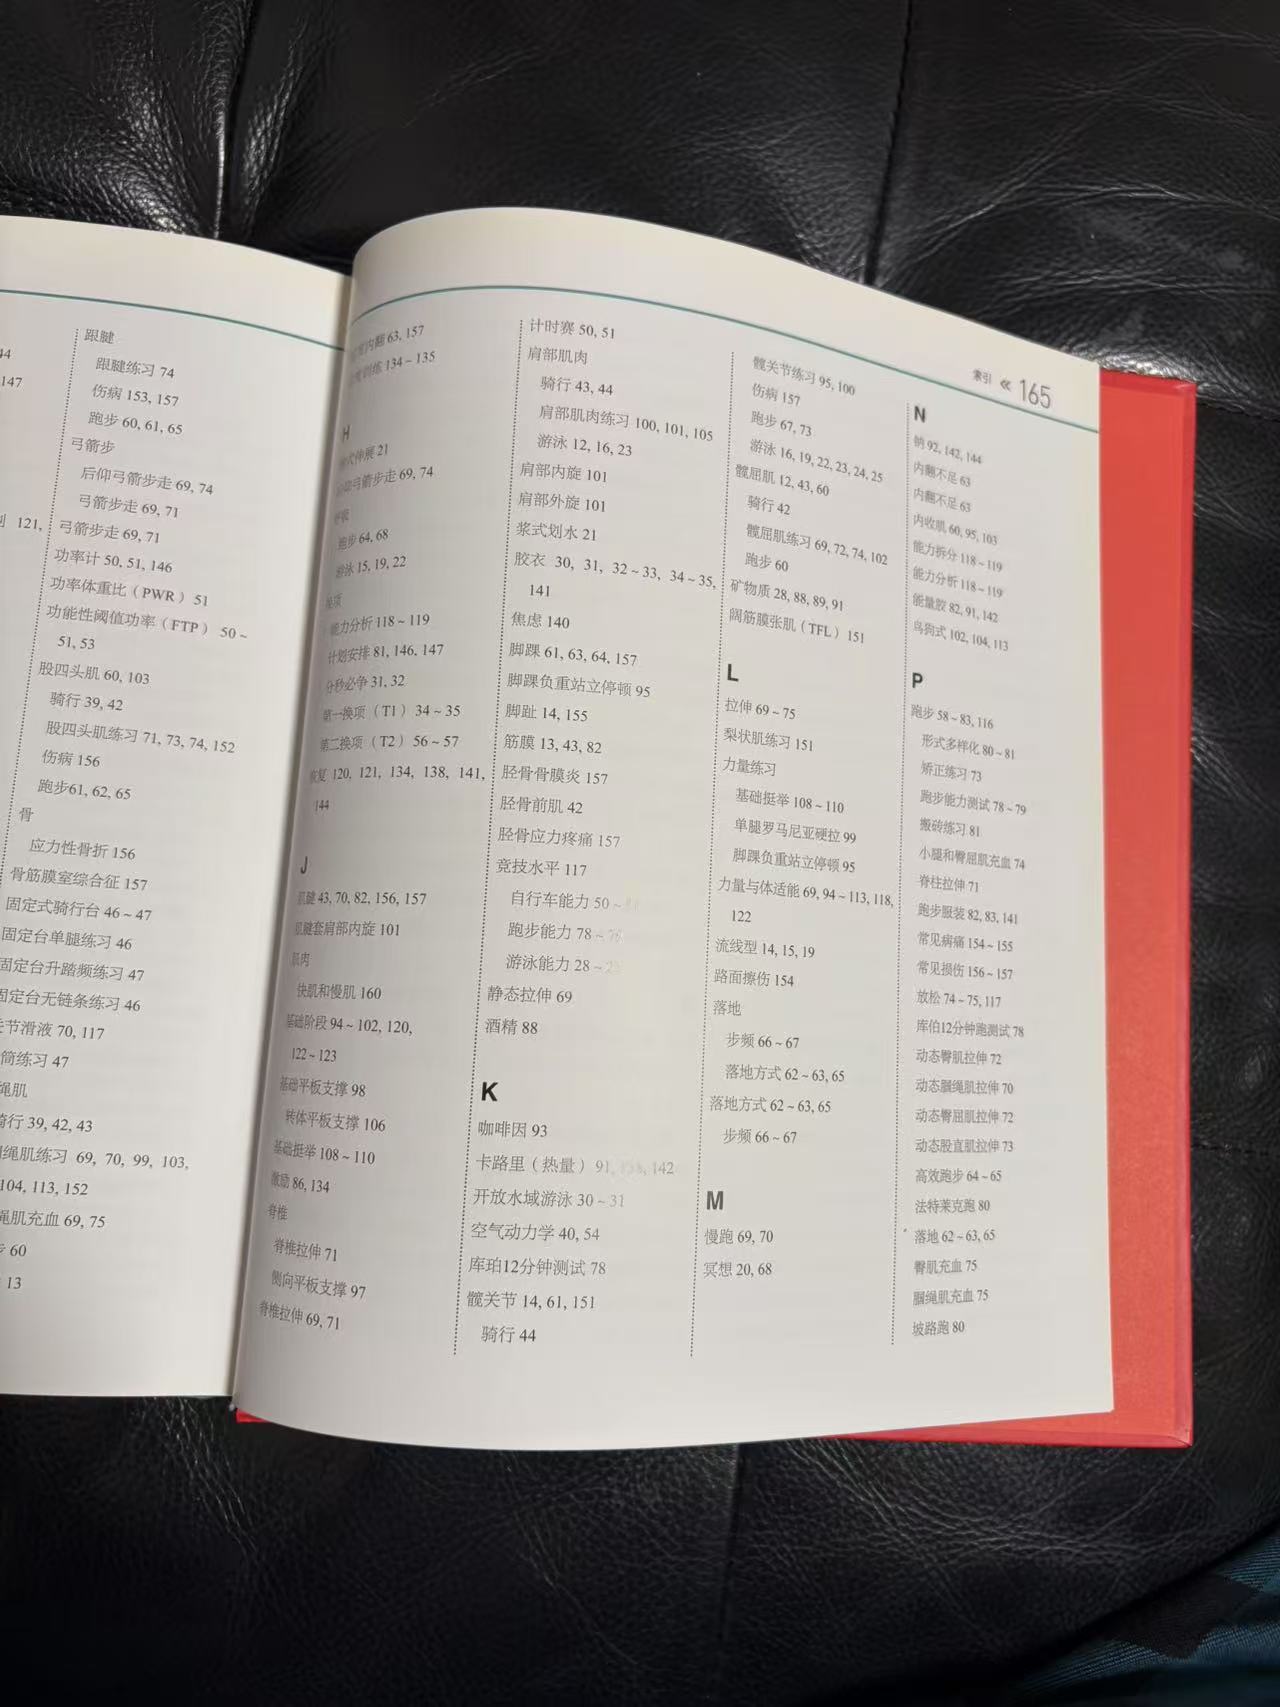 44
147
121,
跟腱
跟腱练习 74
伤病 153, 157
跑步 60, 61, 65
弓箭步
后仰弓箭步走 69, 74
弓箭步走 69, 71
弓箭步走 69, 71
功率计 50, 51, 146
功率体重比（PWR）51
功能性阈值功率（FTP） 50～
51, 53
股四头肌 60, 103
骑行 39, 42
股四头肌练习 71, 73, 74, 152
伤病 156
跑步61, 62, 65
骨
应力性骨折 156
骨筋膜室综合征 157
固定式骑行台 46～47
固定台单腿练习 46
固定台升踏频练习 47
固定台无链条练习 46
节滑液 70, 117
筒练习 47
绳肌
骑行 39, 42, 43
绳肌练习 69, 70, 99, 103,
104, 113, 152
绳肌充血 69, 75
步 60
13
索引 « 165
内翻 63, 157
训练 134～135
H
式伸展 21
后仰弓箭步走 69, 74
呼吸
跑步 64, 68
游泳 15, 19, 22
换项
能力分析 118～119
计划安排 81, 146, 147
分秒必争 31, 32
第一换项（T1）34～35
第二换项（T2）56～57
恢复 120, 121, 134, 138, 141,
144
J
肌腱 43, 70, 82, 156, 157
肌腱套肩部内旋 101
肌肉
快肌和慢肌 160
基础阶段 94～102, 120,
122～123
基础平板支撑 98
转体平板支撑 106
基础挺举 108～110
激励 86, 134
脊椎
脊椎拉伸 71
侧向平板支撑 97
脊椎拉伸 69, 71
计时赛 50, 51
肩部肌肉
骑行 43, 44
肩部肌肉练习 100, 101, 105
游泳 12, 16, 23
肩部内旋 101
肩部外旋 101
桨式划水 21
胶衣 30, 31, 32～33, 34～35,
141
焦虑 140
脚踝 61, 63, 64, 157
脚踝负重站立停顿 95
脚趾 14, 155
筋膜 13, 43, 82
胫骨骨膜炎 157
胫骨前肌 42
胫骨应力疼痛 157
竞技水平 117
自行车能力 50～
跑步能力 78～
游泳能力 28～
静态拉伸 69
酒精 88
K
咖啡因 93
卡路里（热量）91, 142
开放水域游泳 30～31
空气动力学 40, 54
库珀12分钟测试 78
髋关节 14, 61, 151
骑行 44
髋关节练习 95, 100
伤病 157
跑步 67, 73
游泳 16, 19, 22, 23, 24, 25
髋屈肌 12, 43, 60
骑行 42
髋屈肌练习 69, 72, 74, 102
跑步 60
矿物质 28, 88, 89, 91
阔筋膜张肌（TFL）151
L
拉伸 69～75
梨状肌练习 151
力量练习
基础挺举 108～110
单腿罗马尼亚硬拉 99
脚踝负重站立停顿 95
力量与体适能 69, 94～113, 118,
122
流线型 14, 15, 19
路面擦伤 154
落地
步频 66～67
落地方式 62～63, 65
落地方式 62～63, 65
步频 66～67
M
慢跑 69, 70
冥想 20, 68
N
钠 92, 142, 144
内翻不足 63
内翻不足 63
内收肌 60, 95, 103
能力拆分 118～119
能力分析 118～119
能量胶 82, 91, 142
鸟狗式 102, 104, 113
P
跑步 58～83, 116
形式多样化 80～81
矫正练习 73
跑步能力测试 78～79
搬砖练习 81
小腿和臀屈肌充血 74
脊柱拉伸 71
跑步服装 82, 83, 141
常见病痛 154～155
常见损伤 156～157
放松 74～75, 117
库伯12分钟跑测试 78
动态臀肌拉伸 72
动态腘绳肌拉伸 70
动态臀屈肌拉伸 72
动态股直肌拉伸 73
高效跑步 64～65
法特莱克跑 80
落地 62～63, 65
臀肌充血 75
腘绳肌充血 75
坡路跑 80